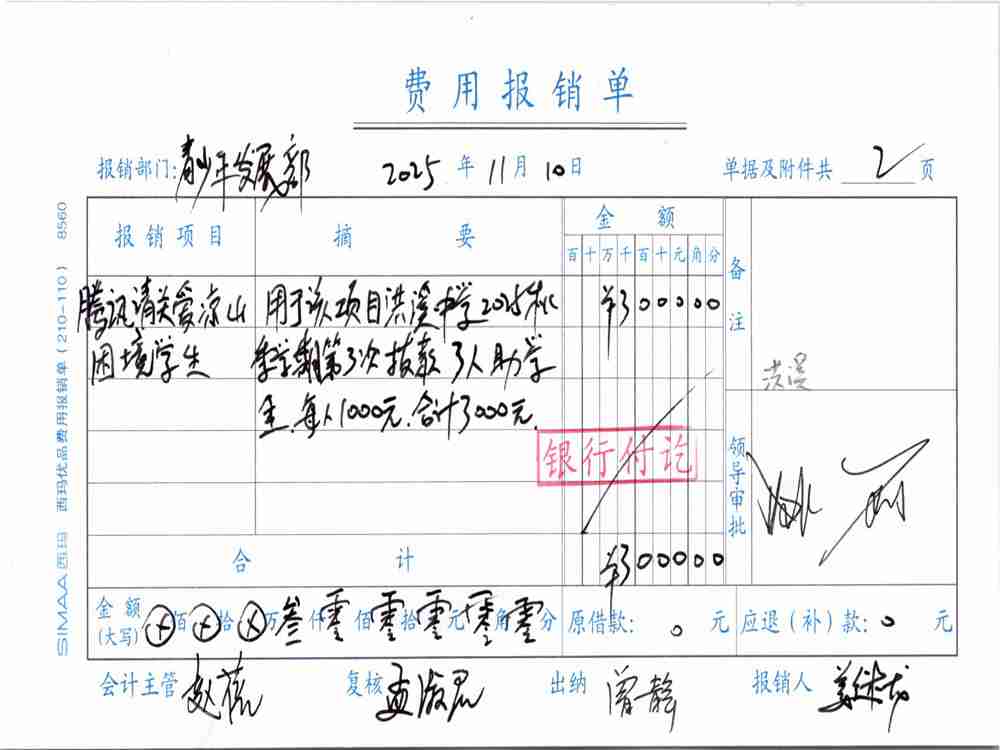 费用报销单
报销部门:青少年发展部 2025 年 11 月 10 日 单据及附件共 2 页
报销项目 摘要 金额 备注
百十万千百十元角分
腾讯请关爱凉山 用于该项目洪溪中学2025秋 ¥300000
困境学生 季学期第3次拨款 3人助学
金.每人1000元.合计3000元.
洪溪
银行付讫
领导审批
合计 ¥300000
金额(大写) ⊗佰⊗拾⊗万叁仟零佰零拾零元零角零分 原借款: 0 元 应退(补)款: 0 元
会计主管 复核 出纳 曾静 报销人
SIMAA 西玛 西玛优品费用报销单(210-110) 8560